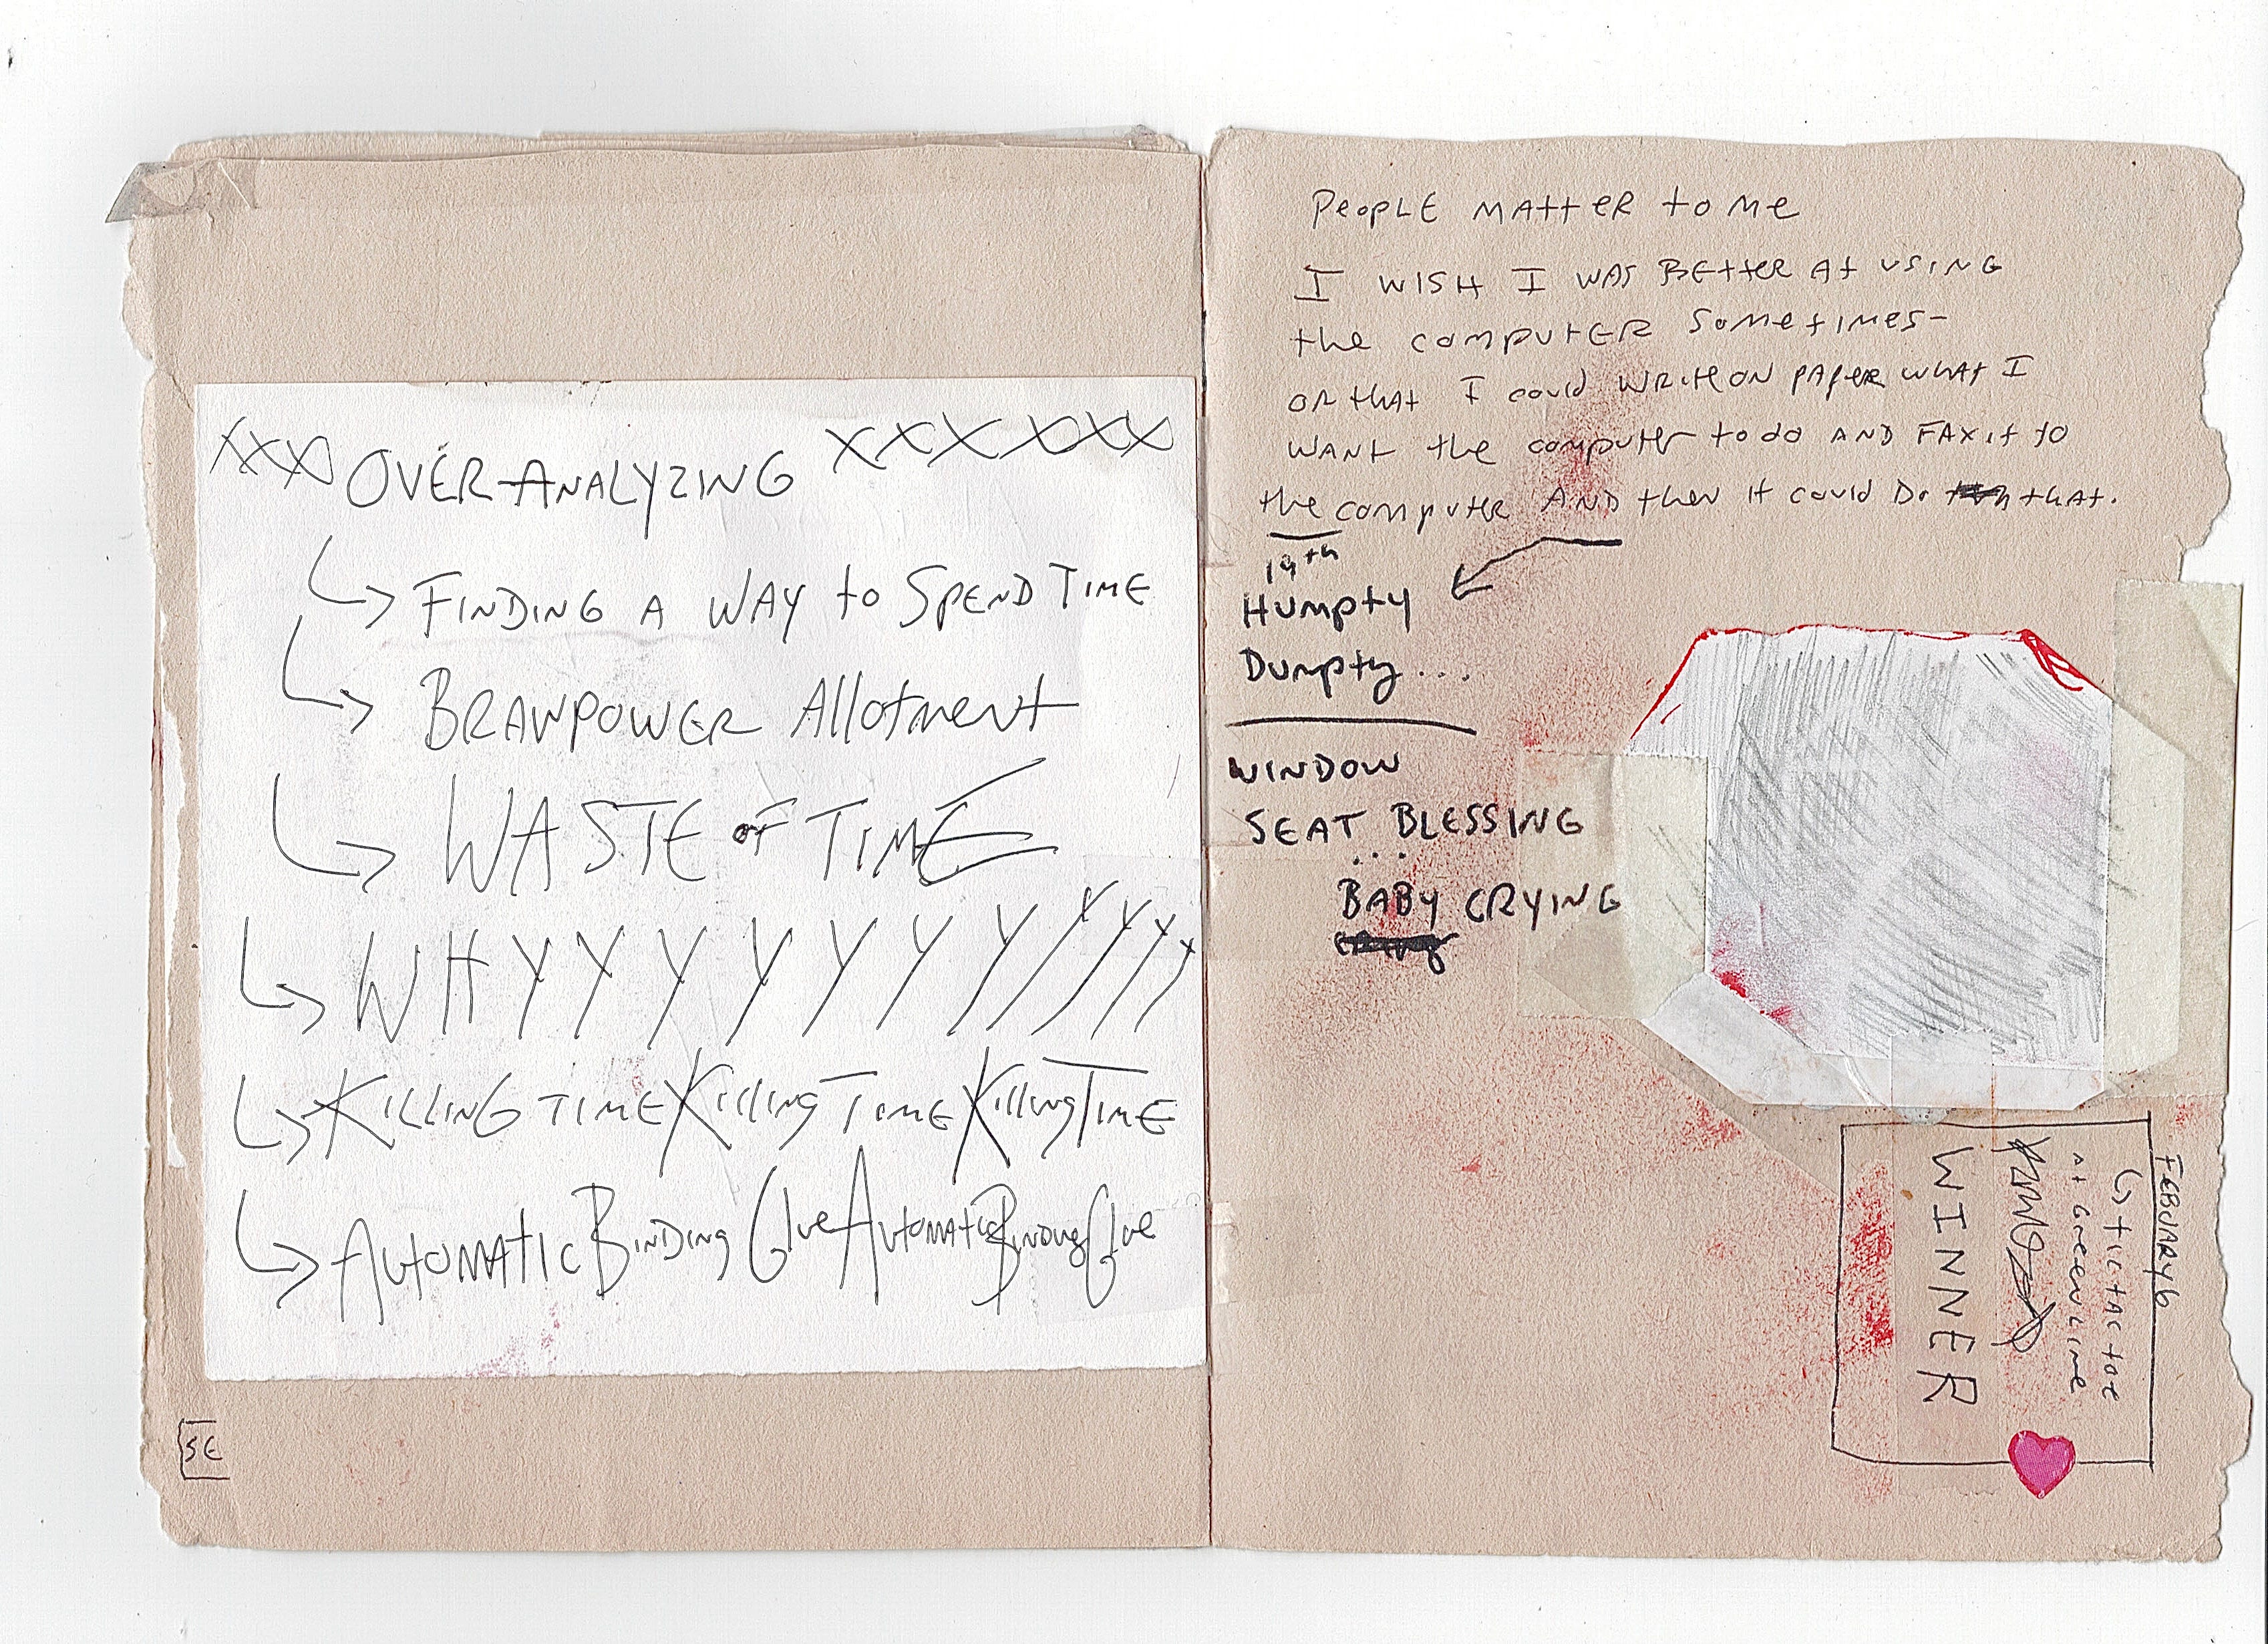 XXX OVER-ANALYZING XXXXXX
FINDING A WAY to SPEND TIME
BRAINPOWER Allotment
WASTE OF TIME
WHYYYYYYYYYYY
KILLING TIME KILLING TIME KILLING TIME
AUTOMATIC BINDING Glue AUTOMATIC BINDING Glue
SE
PEOPLE MATTER to Me
I WISH I WAS BETTER At USING
the COMPUTER SOMETIMES-
OR that I could WRITE ON PAPER what I
WANT the computer to do AND FAX it to
the COMPUTER AND then it could Do that.
19th
HUMPty
DUMPty...
WINDOW
SEAT BLESSING
...
BABY CRYING
FEBUARY 6
tic tac toe
At Green Line
WINNER